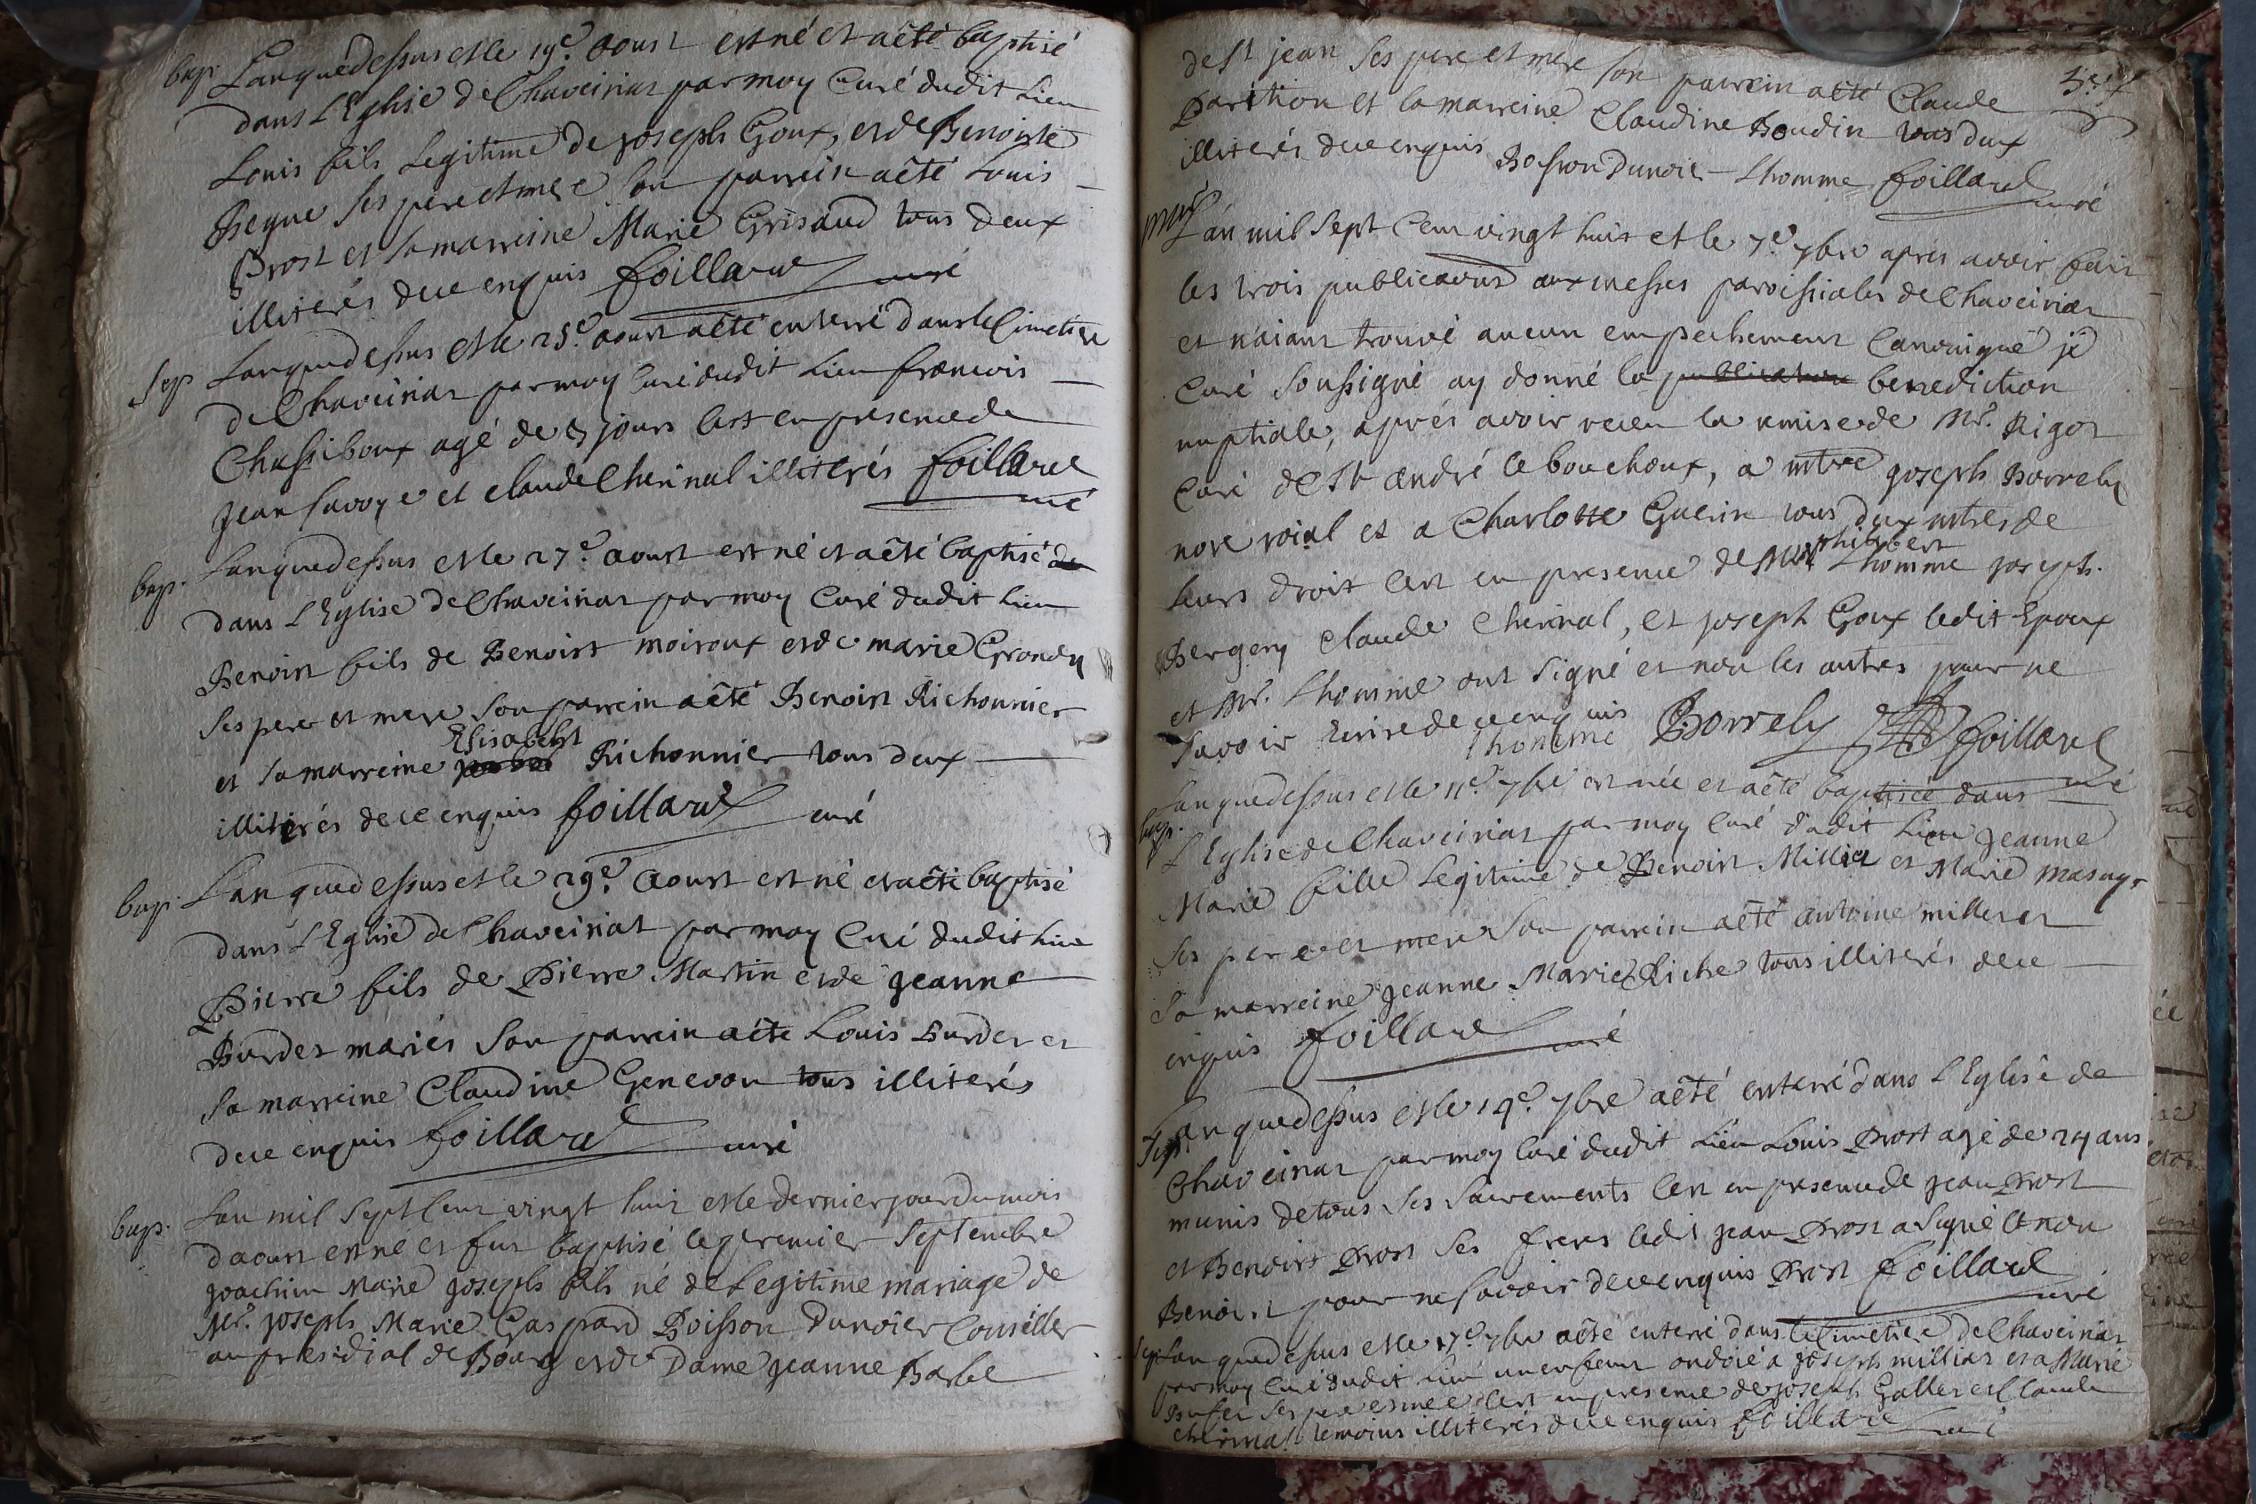 bap. L'an que dessus et le 19e. aoust est né et a êté baptisé
dans l'Eglise de Chaveiriat par moy Curé dudit Lieu
Louis fils Legitime de joseph Goux, et de Benoiste
Begue ses pere et mere son parrein a êté Louis
Prost et sa marreine Marie Grisaud tous deux
illiterés de ce enquis foillard curé
sep. L'an que dessus et le 25e. aoust a êté enterré dans le Cimetiere
de Chaveiriat par moy Curé dudit Lieu francois
Chassiboux agé de 8 jours c'est en presence de
jean Savoye et claude Cherinal illiterés foillard
curé
bap. L'an que dessus et le 27e. aoust est né et a êté baptisé
dans l'Eglise de Chaveiriat par moy Curé dudit Lieu
Benoist fils de Benoist moiroux et de marie Grandy
ses pere et mere son parrein a êté Benoist Richonnier
Elisabeht
et sa marreine Richonnier tous deux
illiterés de ce enquis foillard curé
bap. L'an que dessus et le 29e. aoust est né et a êté baptisé
dans l'Eglise de Chaveiriat par moy Curé dudit Lieu
Pierre fils de Pierre Martin et de jeanne
Burdet mariés son parrein a êté Louis Burdet et
sa marreine Claudine Genevon tous illiterés
de ce enquis foillard curé
bap. L'an mil sept cent vingt huit et le dernier jour du mois
d'aoust est né et fut baptisé le premier Septembre
joachim Marie joseph fils né de Legitime mariage de
Mr. joseph Marie Gaspard Poisson Dunoier Conseiller
au presidial de Bourg et de Dame jeanne Barbe
de St jean ses pere et mere son parrein a êté Claude
Parition et la marreine Claudine Boudin tous deux
illiterés de ce enquis Dunoier Lhomme foillard
curé
L'an mil sept Cent vingt huit et le 7e. 7bre apres avoir fait
les trois publications aux messes paroissiales de Chaveiriat
et n'aiant trouvé aucun empechement Canonique je
Curé Soussigné ay donné la publication benediction
nuptiale, aprés avoir receu la remise de Mr. Rigot
Curé de St André le bouchoux, a mtre joseph Borrely
nore roial et a Charlotte Guerin tous deux mtres de
philibert
leurs droit c'est en presence de Mr. Lhomme joseph
Bergery Claude Cherinal, et joseph Goux ledit Epoux
et Mr. Lhomme ont signé et non les autres pour ne
savoir Ecrire de ce enquis Borrely foillard
Lhomme
curé
bap. L'an que dessus et le 11e. 7bre est née et a êté baptisée dans
L'Eglise de Chaveiriat par moy Curé dudit Lieu jeanne
Marie fille Legitime de Benoist Millier et Marie masuyr
ses pere et mere son parrein a êté antoine milleret
sa marreine jeanne Marie Riche tous illiterés de ce
enquis foillard curé
L'an que dessus et le 14e. 7bre a êté enterré dans l'Eglise de
sep. Chaveiriat par moy Curé dudit Lieu Louis Prost agé de 24 ans
munis de tous ses sacrements c'est en presence de jean Prost
et Benoist Prost ses freres ledit jean Prost a signé et non
Benoist pour ne savoir de ce enquis Prost foillard
curé
sep. L'an que dessus et le 17e. 7bre a êté enterré dans le Cimetiere de Chaveiriat
par moy Curé dudit Lieu un enfant ondoié a joseph milliat et a Marie
Bufet ses pere et mere c'est en presence de joseph Gallet et Claude
cherinal temoins illiterés de ce enquis foillard curé